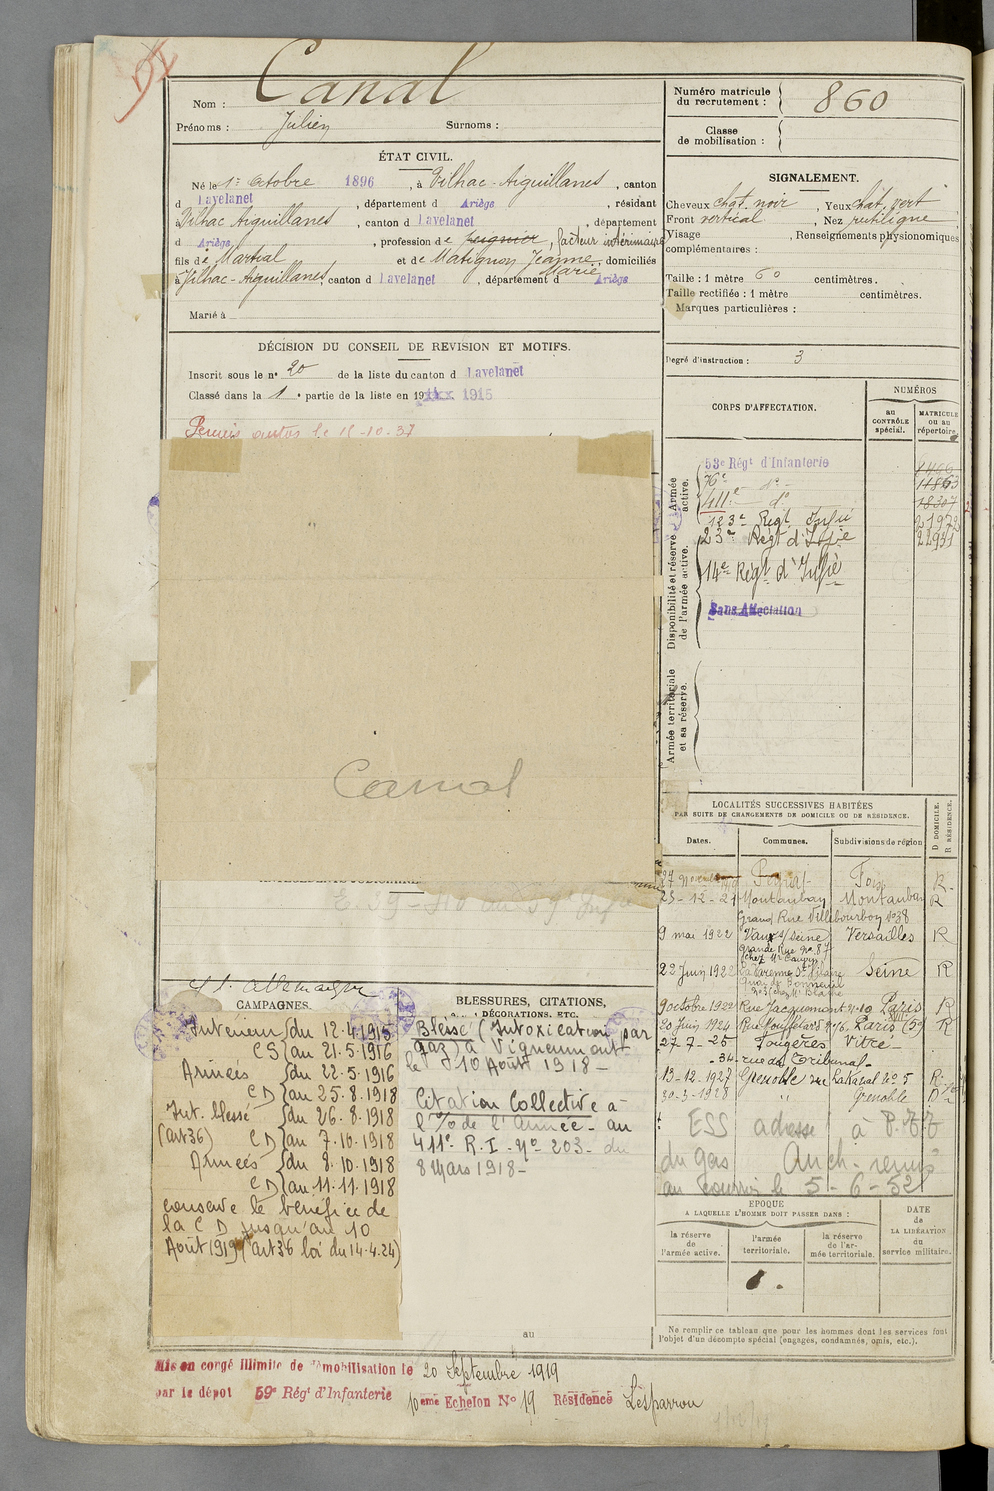 Nom : Canal
Prénoms : Julien Surnoms :
Numéro matricule du recrutement : 860
Classe de mobilisation :
ÉTAT CIVIL.
Né le 1er Octobre 1896, à Vilhac-Aiguillanes, canton
d Lavelanet, département d Ariège, résidant
à Vilhac Aiguillanes, canton d Lavelanet, département
d Ariège, profession de peignier, facteur intérimaire
fils de Martial et de Matignon Jeanne Marie, domiciliés
à Vilhac-Aiguillanes, canton d Lavelanet, département d Ariège
Marié à
SIGNALEMENT.
Cheveux chat. noir, Yeux chat. vert
Front vertical, Nez rectiligne
Visage , Renseignements physionomiques
complémentaires :
Taille : 1 mètre 60 centimètres.
Taille rectifiée : 1 mètre centimètres.
Marques particulières :
Degré d'instruction : 3
DÉCISION DU CONSEIL DE REVISION ET MOTIFS.
Inscrit sous le n° 20 de la liste du canton d Lavelanet
Classé dans la 1e partie de la liste en 19 1915
Permis autos le 15-10-37
Canal
CORPS D'AFFECTATION.
NUMÉROS
au CONTRÔLE spécial.
MATRICULE ou au répertoire.
Armée active.
53e Régt d'Infanterie
76e - do - 11863
411e - do 18307
123e Régt Infie 21972
23e Régt d'Infie 22931
Disponibilité et réserve de l'armée active.
14e Régt d'Infie
Sans Affectation
Armée territoriale et sa réserve.
LOCALITÉS SUCCESSIVES HABITÉES
PAR SUITE DE CHANGEMENTS DE DOMICILE OU DE RÉSIDENCE.
Dates. Communes. Subdivisions de région D DOMICILE. R RÉSIDENCE.
27 Novembre Peyrat Foix R
23-12-21 Montauban Montauban R
Grand Rue Villebourbon n°38
9 mai 1922 Vaux s/Seine Versailles R
Grande Rue n° 87
22 Juin 1922 La Varenne St Hilaire Seine R
Quai de Bonneuil
9 octobre 1922 Rue Jacquemont n° 10 Paris R
20 Juin 1924 Rue Mouffetard n° 76. Paris (5e) R
27-7-25 Fougères Vitré
34 rue du Tribunal
13-12-1927 Grenoble rue Lakanal n° 5 R
30-3-1928 " Grenoble D
ESS adresse à P.
du gas Auch.
au courris le 5-6-52
E. 39-40 au 59e Infie
CAMPAGNES.
Intérieur du 12.4.1915
CS au 21.5.1916
Armées du 22.5.1916
CD au 25.8.1918
Int. blessé du 26.8.1918
(art 36) CD au 7.10.1918
Armées du 8.10.1918
CD au 11.11.1918
conserve le bénéfice de
la C D jusqu'au 10
Août 1919 (art 36 loi du 14.4.24)
BLESSURES, CITATIONS,
DÉCORATIONS, ETC.
Blessé (Intoxication par
gaz) à Vignemont
le 10 Août 1918 -
Citation Collective à
l'O/ de l'armée - au
411e R.I. No 203 - du
8 Mars 1918 -
au
EPOQUE
A LAQUELLE L'HOMME DOIT PASSER DANS :
la réserve de l'armée active.
l'armée territoriale.
la réserve de l'armée territoriale.
DATE de LA LIBÉRATION du service militaire.
Ne remplir ce tableau que pour les hommes dont les services font
l'objet d'un décompte spécial (engagés, condamnés, omis, etc.).
Mis en congé illimité de démobilisation le 20 Septembre 1919
par le dépôt 59e Régt d'Infanterie 10ème Echelon No 19 Résidence Lesparrou